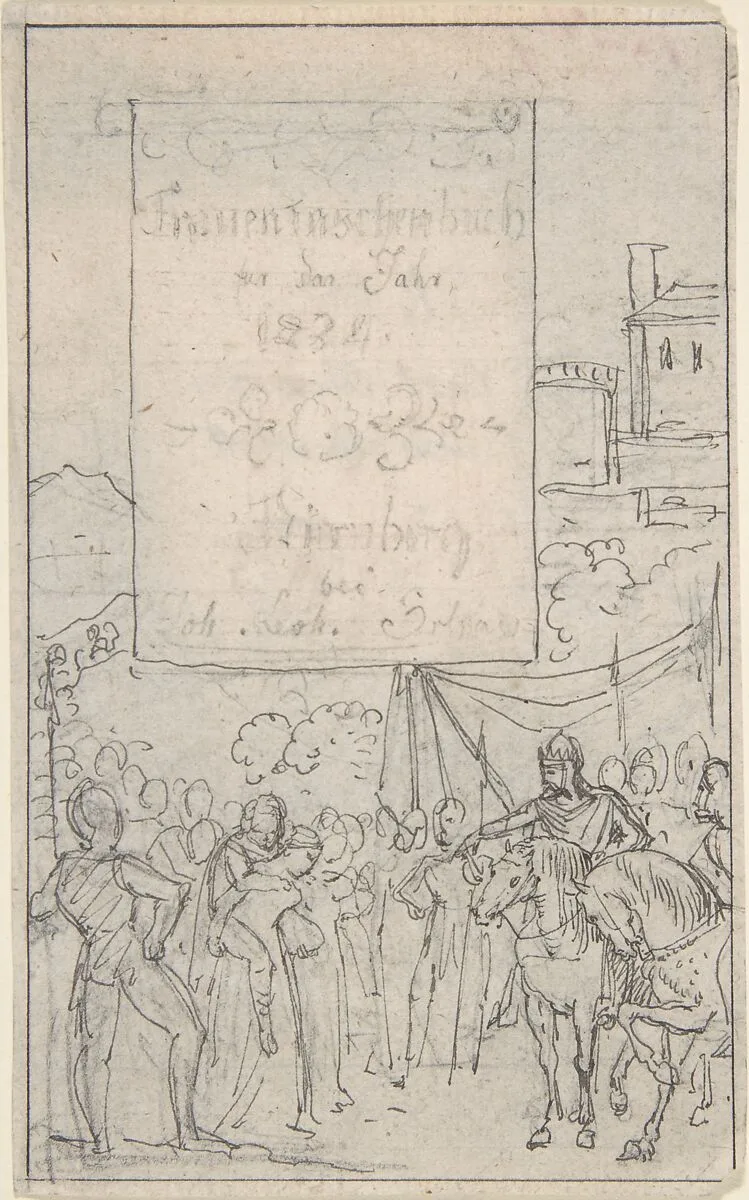 Frauentaschenbuch
für das Jahr
Nürnberg
bei
Joh. Leoh.